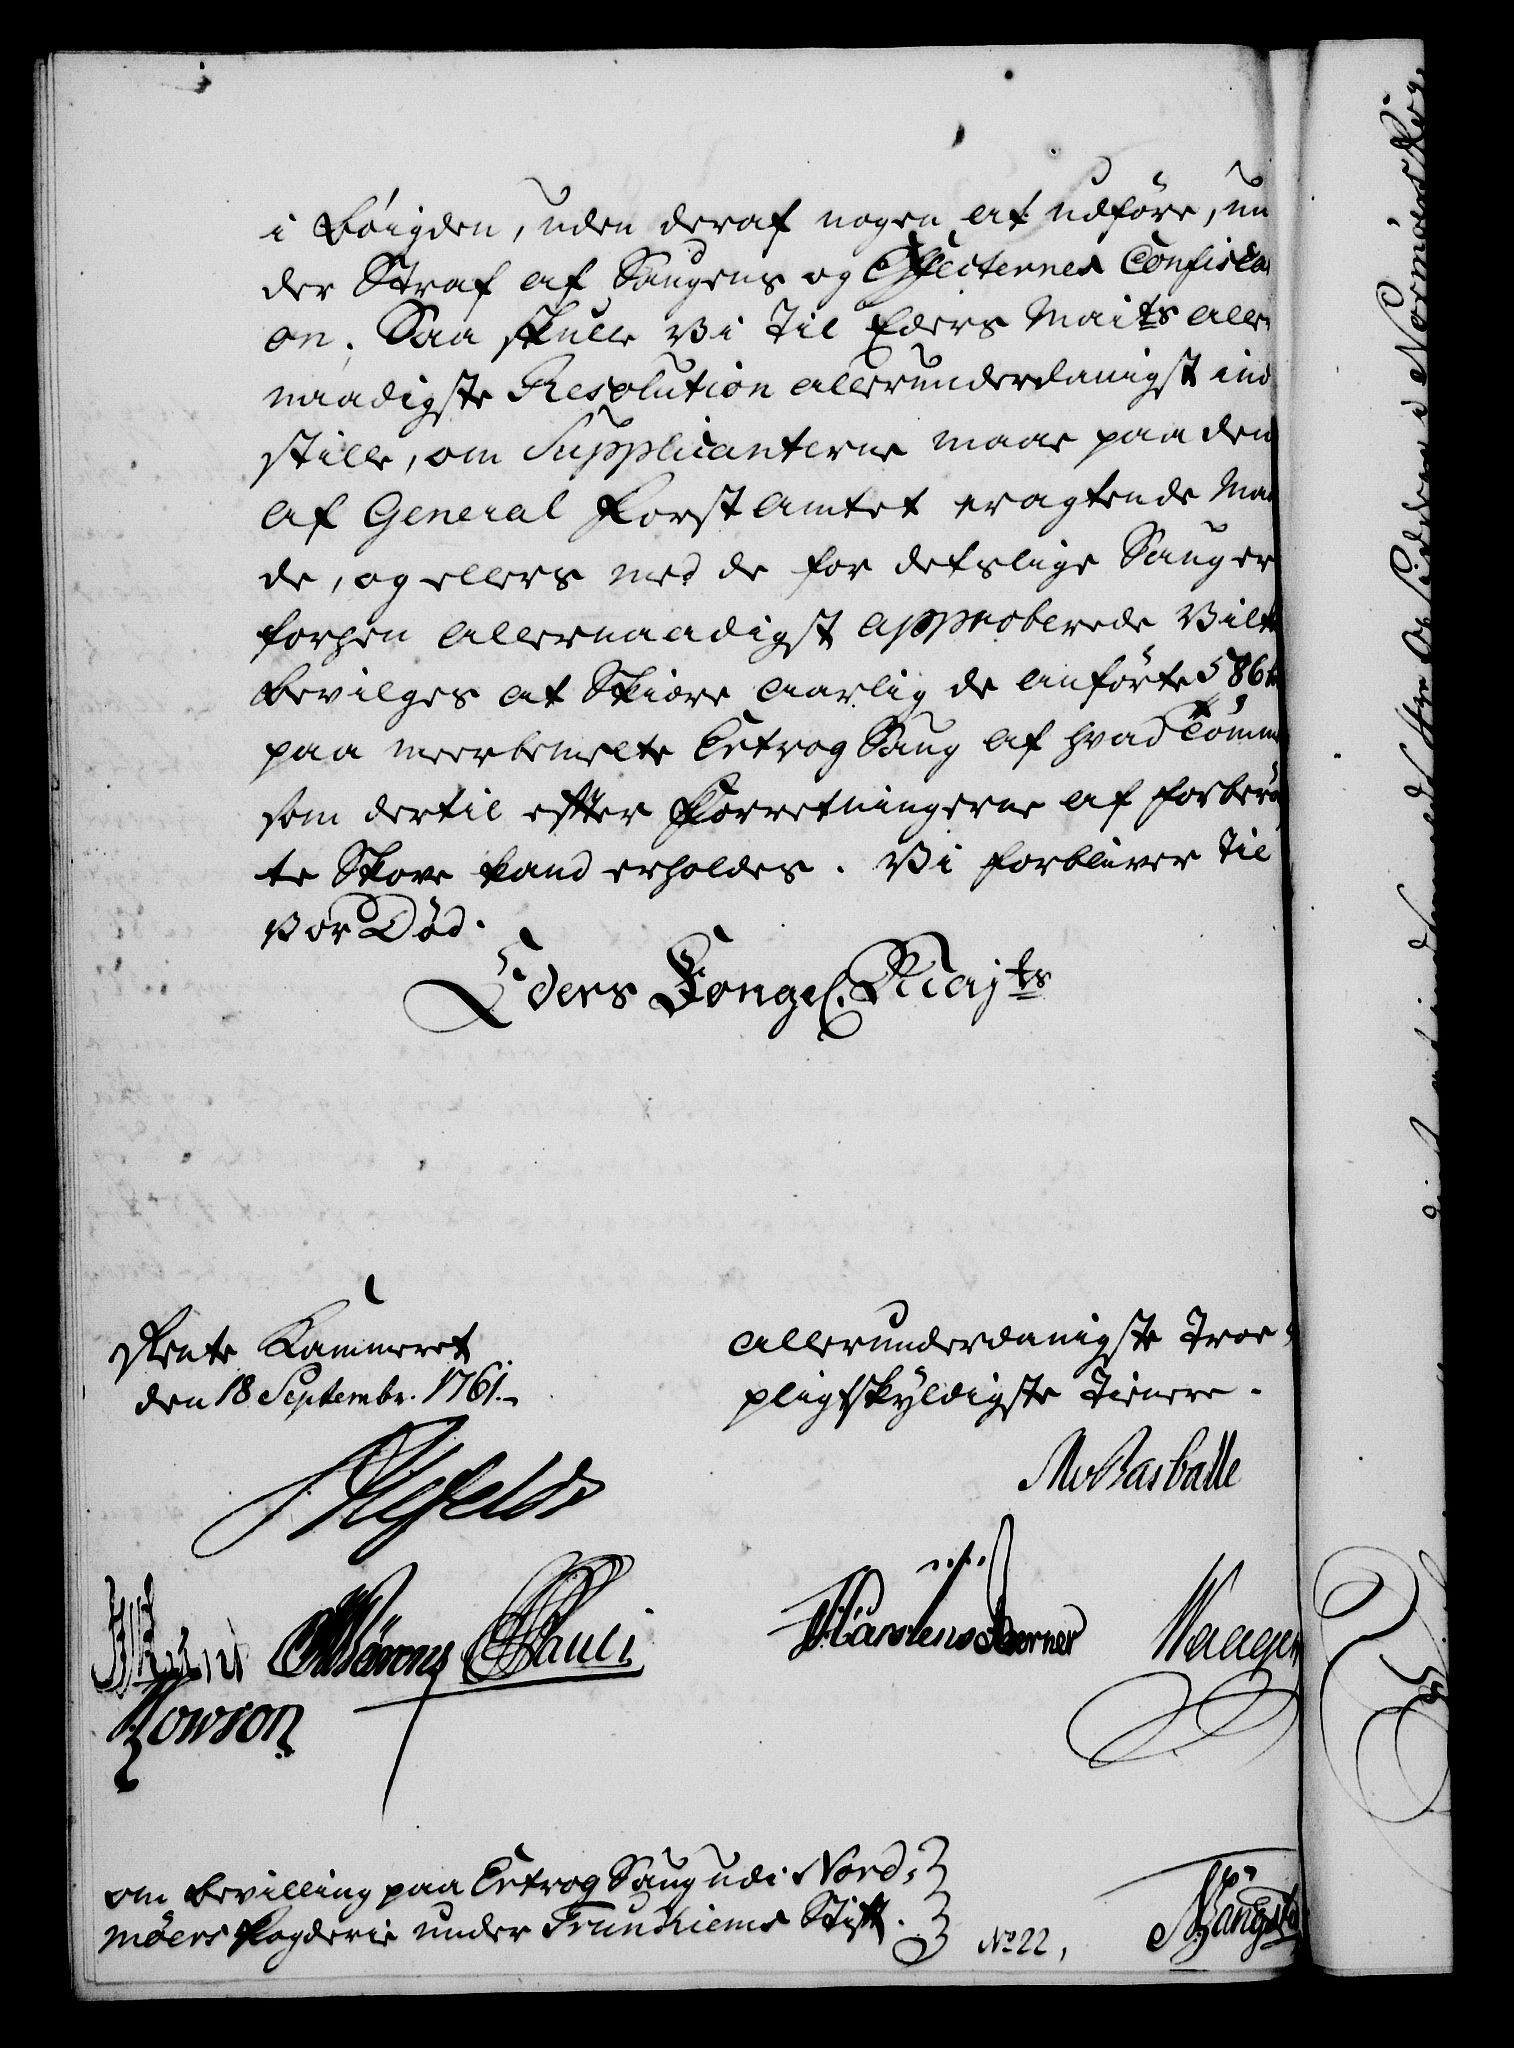 i Bøigden, uden deraf nogen at udføre, un
der Straf af Saugens og Effecternes Confisca
on; Saa skulle Vi til Eders Maits aller
naadigste Resolution allerunderdanigst ind
stille, om Supplicanterne maae paa den
af General Forst Amtet eragtende Maa
de, og ellers med de for deslige Sauger
forhen allernaadigst approberede Vilk
bevilges at Skiære aarlig de anførte 586
paa meerbemelte Ertvog Saug af hvad Tømme
som dertil efter Forretningerne af forberø
te Skove kand erholdes. Vi forbliver til
Vor Død.
Eders Kongel. Majts
Rente Kammeret
den 18 Septembr. 1761.
allerunderdanigste Troe
pligtskyldigste Tienere.
Ahlefeldt
MvBasballe
Pauli
Karstens Berner
Waagen
Rowson
om bevilling paa Ertvog Saug udi Nord-
møers Fogderie under Trundhiems Stift.
No 22,